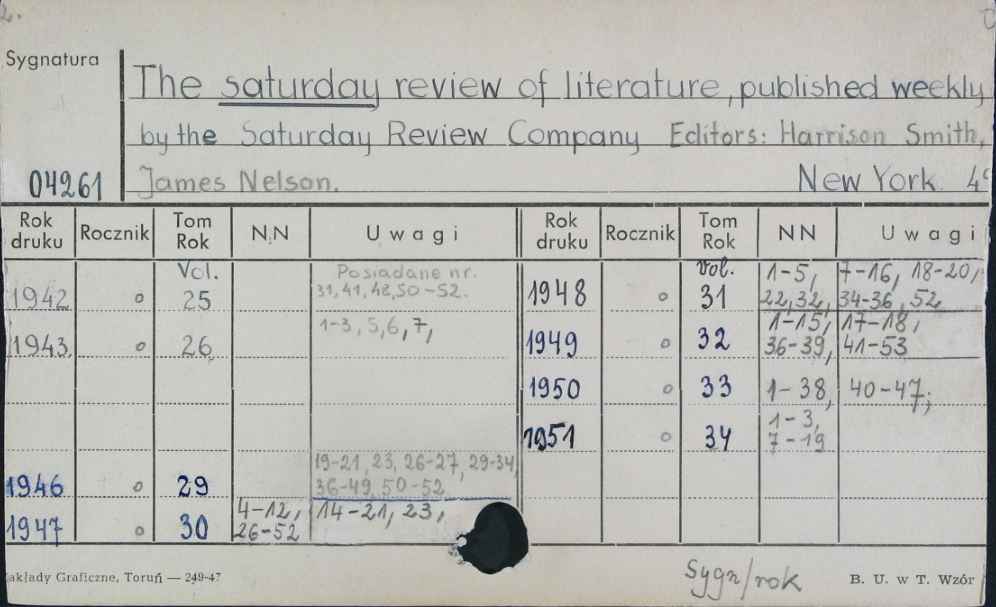 2.
Sygnatura
The saturday review of literature, published weekly
by the Saturday Review Company Editors: Harrison Smith,
04261 James Nelson. New York 4°
Rok druku Rocznik Tom Rok N.N Uwagi Rok druku Rocznik Tom Rok NN Uwagi
Vol. Posiadane nr. vol. 1-5, 7-16, 18-20,
1942 o 25 31, 41, 48, 50-52. 1948 o 31 22, 32, 34-36, 52
1-3, 5, 6, 7, 1-15, 17-18,
1943. o 26 1949 o 32 36-39, 41-53
1950 o 33 1-38, 40-47;
1-3,
1951 o 34 7-19
19-21, 23, 26-27, 29-34,
1946 o 29 36-49, 50-52
4-12, 14-21, 23,
1947 o 30 26-52
akłady Graficzne, Toruń — 249-47 Sygn/rok B. U. w T. Wzór